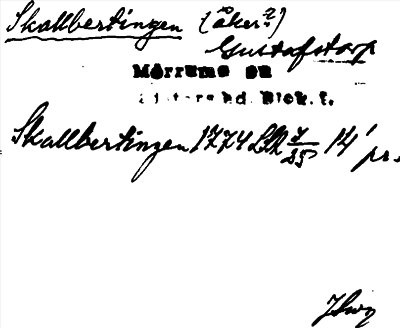 Skallbertingen (åker?)
Gustafstorp
Mörrums sn
Listers hd. Blek. l.
Skallbertingen 1774 LSA 7/25 14' pr.